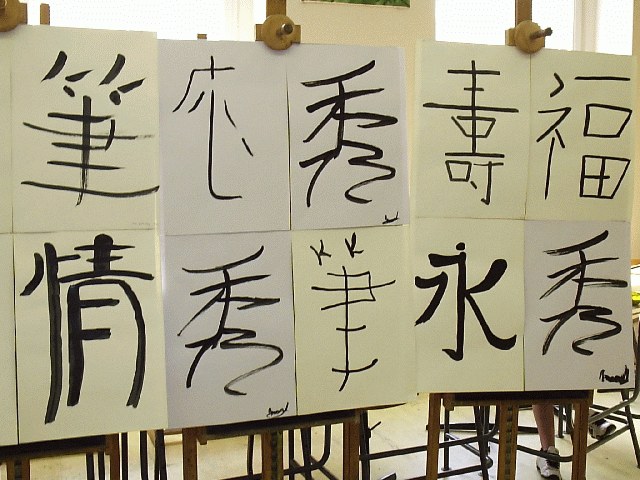 筆 秀 壽 福
情 秀 筆 永 秀